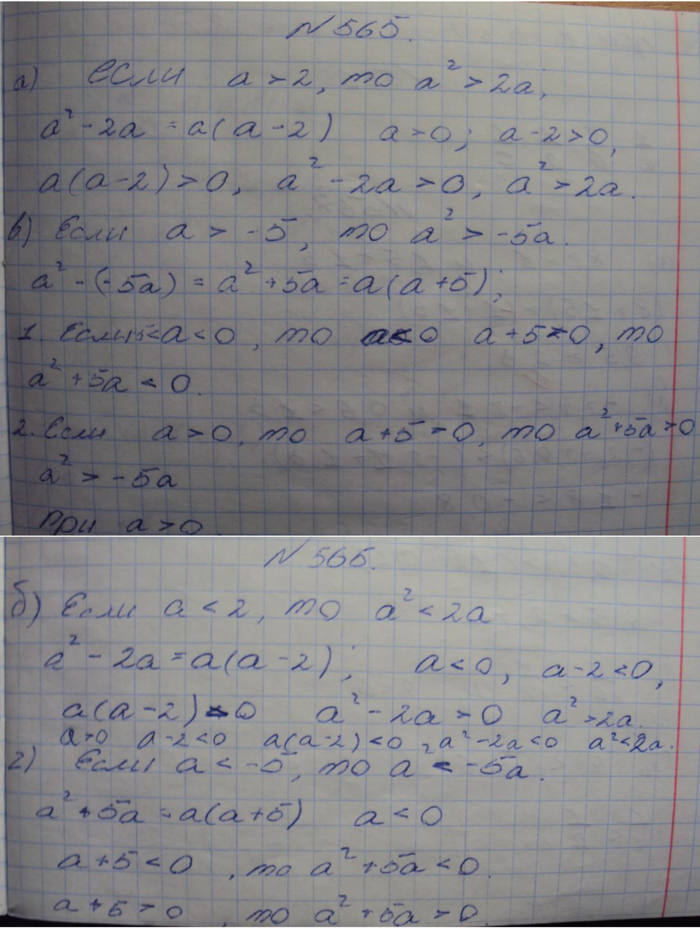 № 565.
а) если a > 2, то a² > 2a,
a² - 2a = a(a - 2) a > 0; a - 2 > 0,
a(a - 2) > 0, a² - 2a > 0, a² > 2a.
в) Если a > -5, то a² > -5a.
a² - (-5a) = a² + 5a = a(a + 5);
1. Если -5 < a < 0, то a < 0 a + 5 > 0, то
a² + 5a < 0.
2. Если a > 0, то a + 5 > 0, то a² + 5a > 0
a² > -5a
при a > 0
№ 566.
б) Если a < 2, то a² < 2a
a² - 2a = a(a - 2); a < 0, a - 2 < 0,
a(a - 2) > 0 a² - 2a > 0 a² > 2a.
a > 0 a - 2 < 0 a(a - 2) < 0 a² - 2a < 0 a² < 2a.
г) Если a < -5, то a² < -5a.
a² + 5a = a(a + 5) a < 0
a + 5 < 0, то a² + 5a < 0.
a + 5 > 0, то a² + 5a > 0